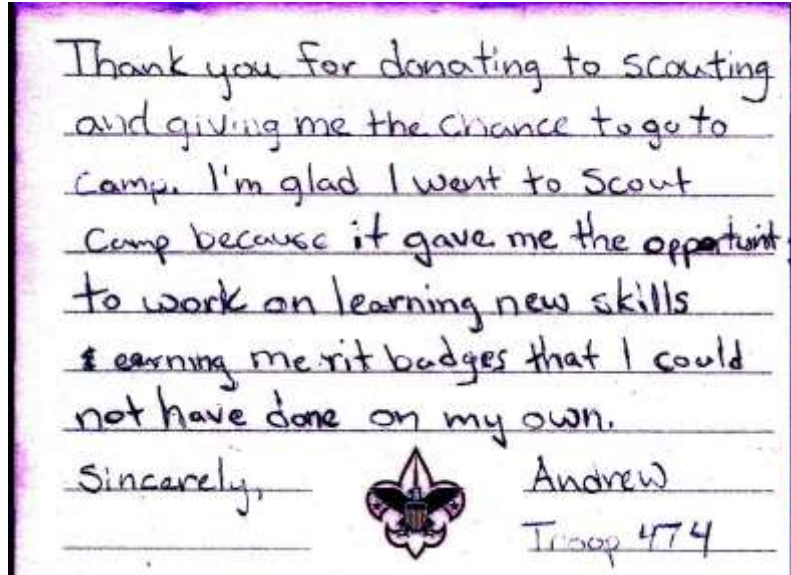 Thank you for donating to scouting
and giving me the chance to go to
camp. I'm glad I went to Scout
Camp because it gave me the opportunit
to work on learning new skills
& earning merit badges that I could
not have done on my own.
Sincerely,
Andrew
Troop 474